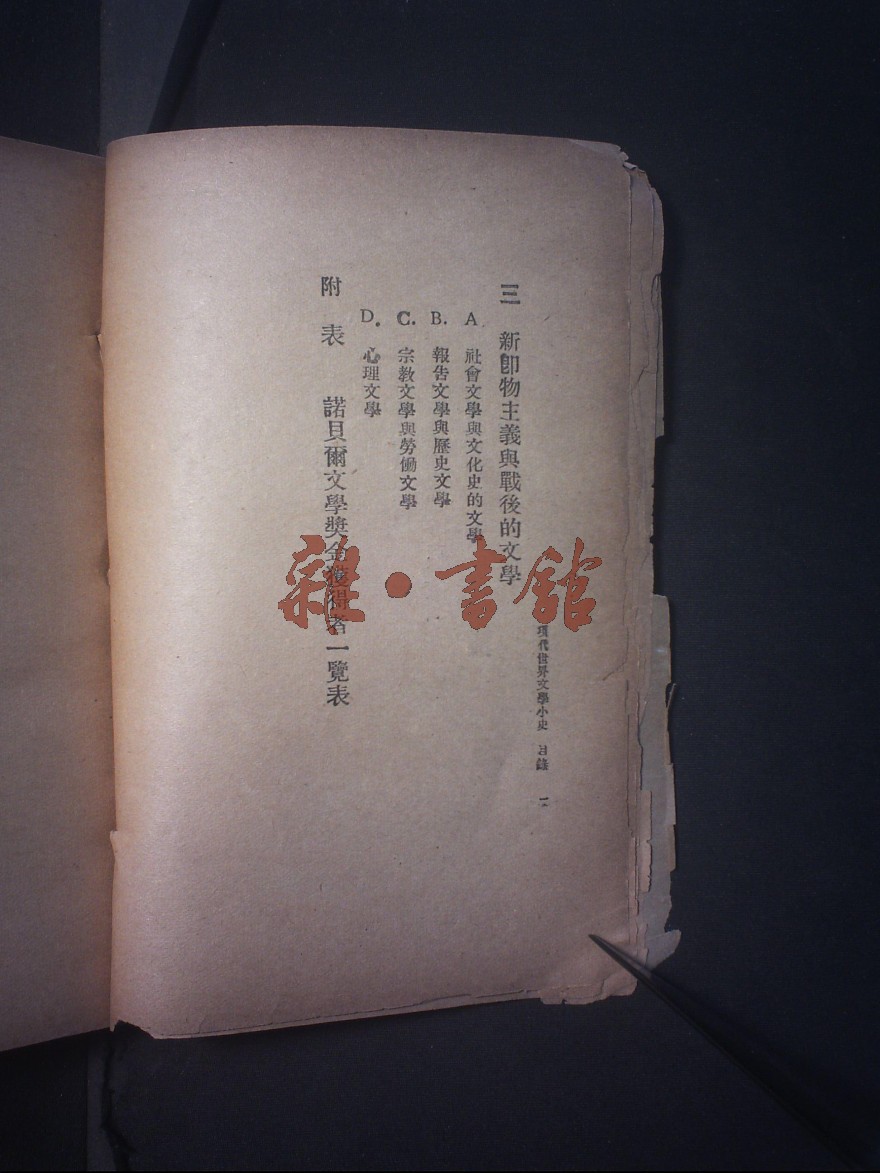 現代世界文學小史 目錄 二
三 新卽物主義與戰後的文學
A 社會文學與文化史的文學
B. 報告文學與歷史文學
C. 宗教文學與勞働文學
D. 心理文學
附表 諾貝爾文學獎金獲得者一覽表
雜·書館